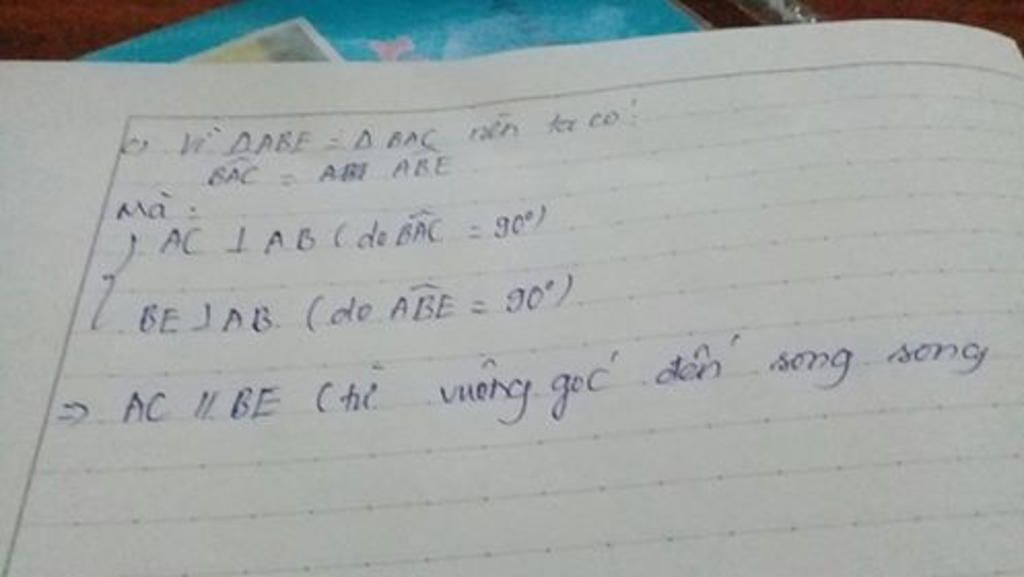 c) Vì ΔABE = Δ BAC nên ta có:
BAC = ABE
Mà:
AC ⊥ AB (do BAC = 90°)
BE ⊥ AB. (do ABE = 90°)
=> AC // BE (từ vuông góc đến song song